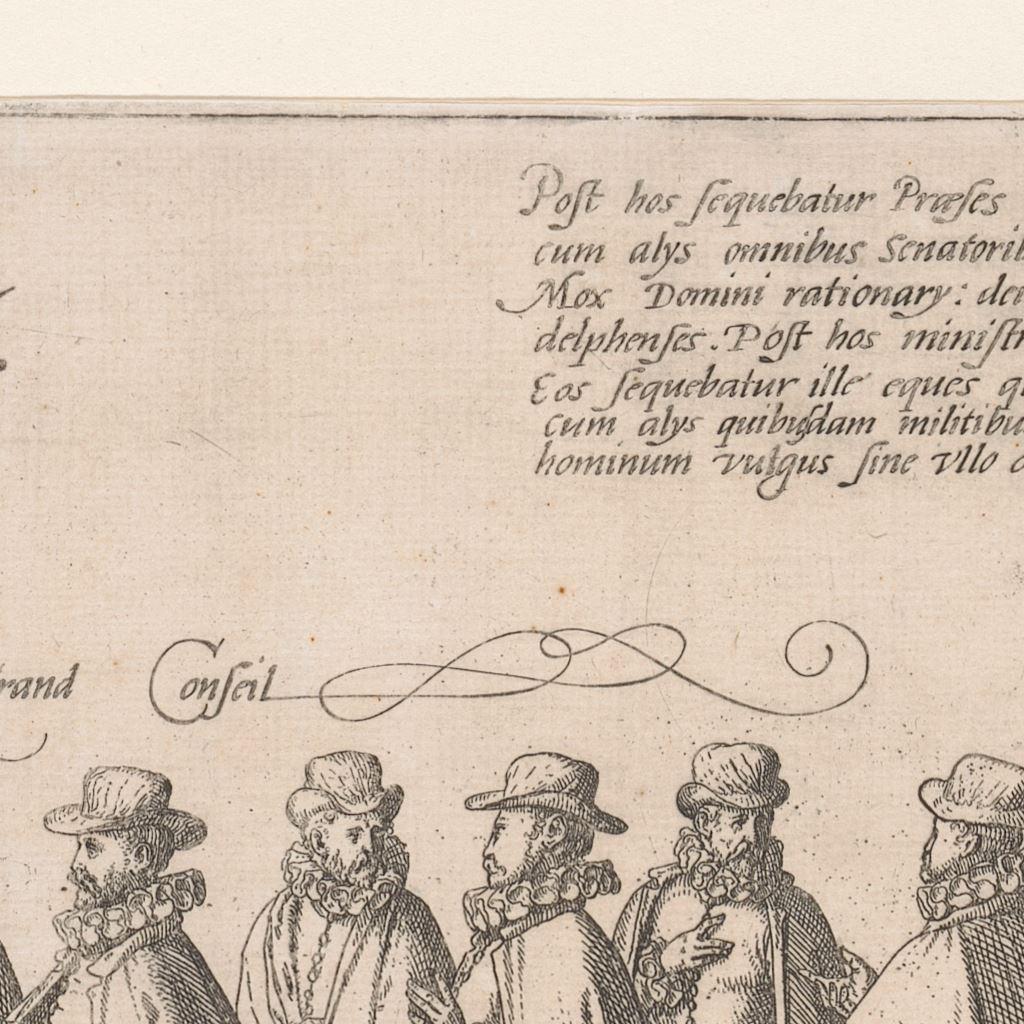 Poſt hos ſequebatur Præſes
cum alys omnibus Senatorib
Mox Domini rationary: de
delphenſes. Poſt hos miniſtr
Eos ſequebatur ille eques q
cum alys quibuſdam militibu
hominum vulgus ſine vllo
rand Conſeil